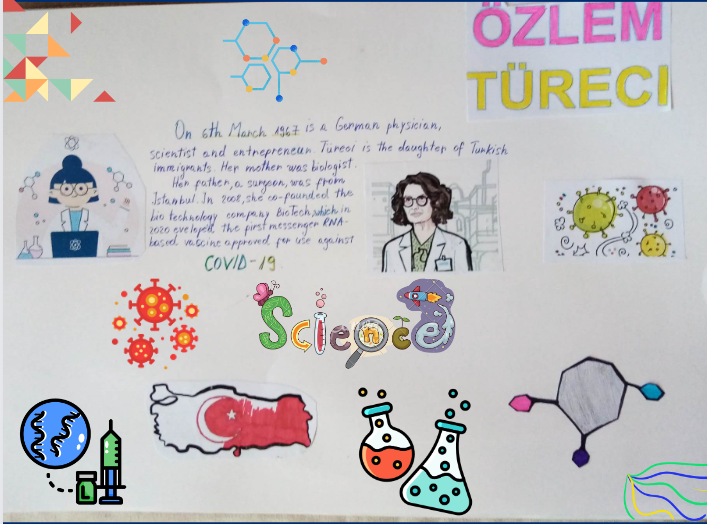 ÖZLEM
TÜRECI
On 6th March 1967 is a German physician,
scientist and entrepreneur. Türeci is the daughter of Turkish
immigrants. Her mother was biologist.
Her father, a surgeon, was from
Istanbul. In 2008, she co-founded the
bio technology company BioTech, which in
2020 eveloped the first messenger RNA-
based vaccine approved for use against
COVID-19.
Science